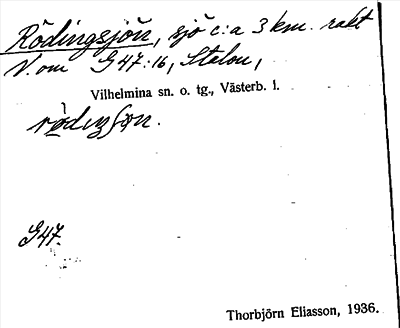 Rödingsjön, sjö c:a 3 km. rakt
V. om G47:16, Stalon,
Vilhelmina sn. o. tg., Västerb. l.
G47.
Thorbjörn Eliasson, 1936.